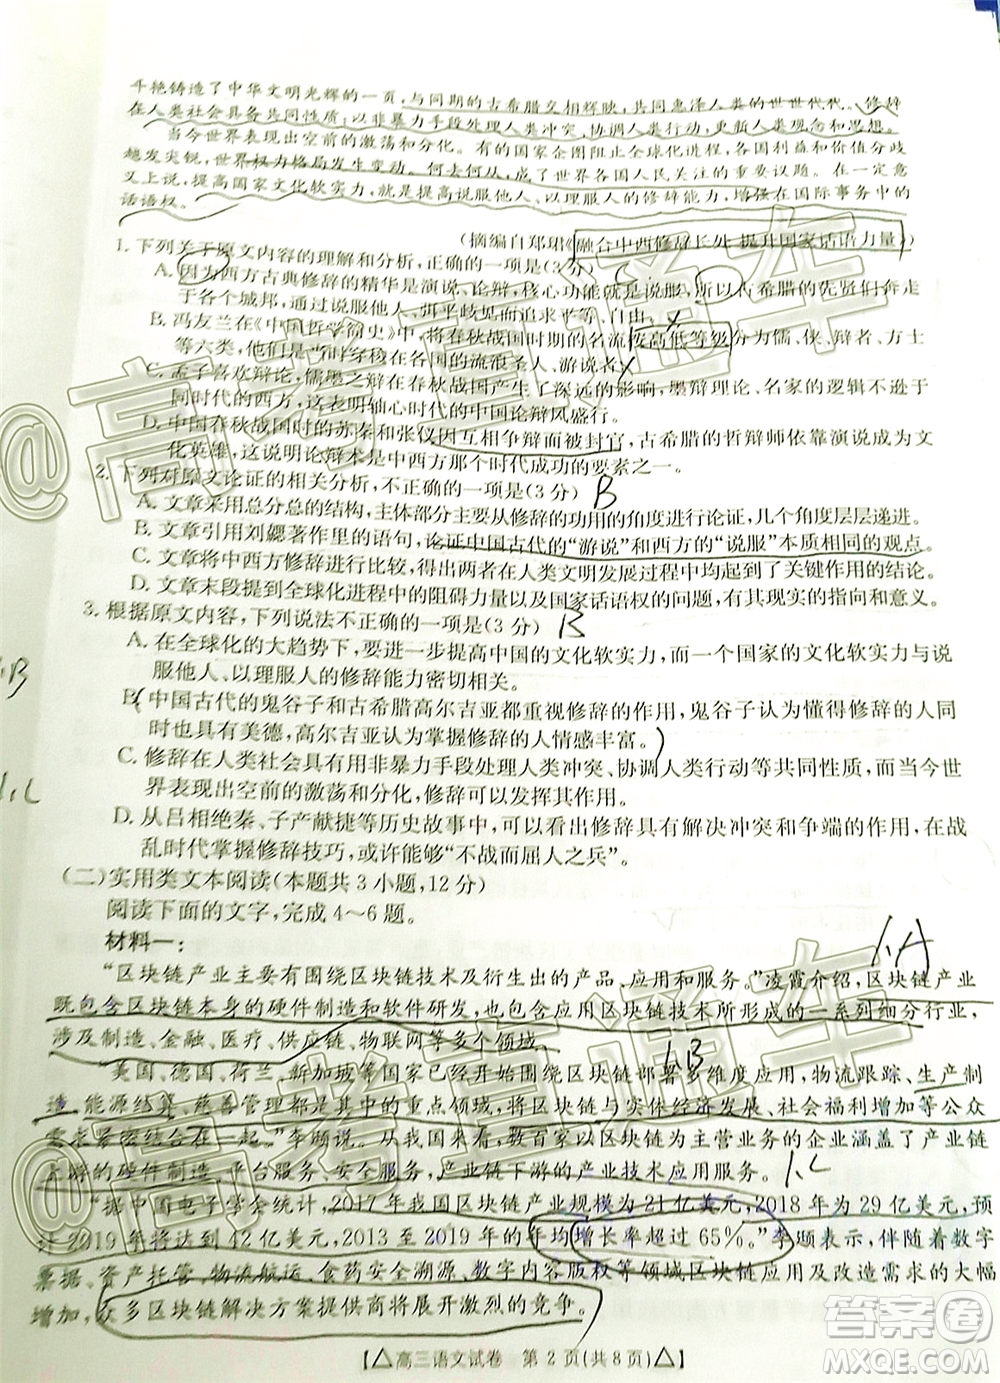 斗艳铸造了中华文明光辉的一页,与同期的古希腊交相辉映,共同惠泽人类的世世代代。修辞
在人类社会具备共同性质:以非暴力手段处理人类冲突,协调人类行动,更新人类观念和思想。
当今世界表现出空前的激荡和分化。有的国家企图阻止全球化进程,各国的利益和价值分歧
越发尖锐,世界权力格局发生变动。何去何从,成了世界各国人民关注的重要议题。在一定意
义上,提高国家文化软实力,就是提高说服他人、以理服人的修辞能力,增强在国际事务中的
话语权。
(摘编自郑珺《融合中西修辞长处 提升国家话语力量》)
1. 下列关于原文内容的理解和分析,正确的一项是(3分)
A. 因为西方古典修辞的精华是演说、论辩,核心功能就是说服,所以古希腊的先贤们奔走
于各个城邦,通过说服他人、弭平歧见而追求平等、自由。
B. 冯友兰在《中国哲学简史》中,将春秋战国时期的名流按高低等级分为儒、侠、辩者、方士
等六类,他们就是穿梭在各国的流浪圣人、游说者
C. 孟子喜欢辩论,儒墨之辩在春秋战国产生了深远的影响,墨辩理论、名家的逻辑不逊于
同时代的西方,这表明轴心时代的中国论辩风盛行。
D. 中国春秋战国时的苏秦和张仪因互相争辩而被封官,古希腊的哲辩师依靠演说成为文
化英雄,这说明辩术是中西方那个时代成功的要素之一。
2. 下列对原文论证的相关分析,不正确的一项是(3分) B
A. 文章采用总分总的结构,主体部分主要从修辞的功用的角度进行论证,几个角度层层递进。
B. 文章引用刘勰著作里的语句,论证中国古代的“游说”和西方的“说服”本质相同的观点。
C. 文章将中西方修辞进行比较,得出两者在人类文明发展过程中均起到了关键作用的结论。
D. 文章末段提到全球化进程中的阻碍力量以及国家话语权的问题,有其现实的指向和意义。
3. 根据原文内容,下列说法不正确的一项是(3分) B
A. 在全球化的大趋势下,要进一步提高中国的文化软实力,而一个国家的文化软实力与说
服他人、以理服人的修辞能力密切相关。
B. 中国古代的鬼谷子和古希腊高尔吉亚都重视修辞的作用,鬼谷子认为懂得修辞的人同
时也具有美德,高尔吉亚认为掌握修辞的人情感丰富。
C. 修辞在人类社会具有用非暴力手段处理人类冲突、协调人类行动等共同性质,而当今世
界表现出空前的激荡和分化,修辞可以发挥其作用。
D. 从吕相绝秦、子产献捷等历史故事中,可以看出修辞具有解决冲突和争端的作用,在战
乱时代掌握修辞技巧,或许能够“不战而屈人之兵”。
(二)实用类文本阅读(本题共3小题,12分)
阅读下面的文字,完成4～6题。
材料一:
1.A
“区块链产业主要有围绕区块链技术及衍生出的产品、应用和服务。”凌霞介绍,区块链产业
既包含区块链本身的硬件制造和软件研发,也包含应用区块链技术所形成的一系列细分行业,
涉及制造、金融、医疗、供应链、物联网等多个领域。
1.B
“美国、德国、荷兰、新加坡等国家已经开始围绕区块链部署多维度应用,物流跟踪、生产制
造、能源结算、慈善管理都是其中的重点领域,将区块链与实体经济发展、社会福利增加等公众
需求紧密结合在一起。”李颋说。从我国来看,数百家以区块链为主营业务的企业涵盖了产业链
上游的硬件制造、平台服务、安全服务,产业链下游的产业技术应用服务。 1.C
“据中国电子学会统计,2017年我国区块链产业规模为21亿美元,2018年为29亿美元,预
计2019年将达到42亿美元,2013至2019年的年均增长率超过65%。”李颋表示,伴随着数字
票据、资产托管、物流航运、食药安全溯源、数字内容版权等领域区块链应用及改造需求的大幅
增加,众多区块链解决方案提供商将展开激烈的竞争。
【△高三语文试卷 第2页(共8页)△】
@高考直通车
@高考直通车
答案卷